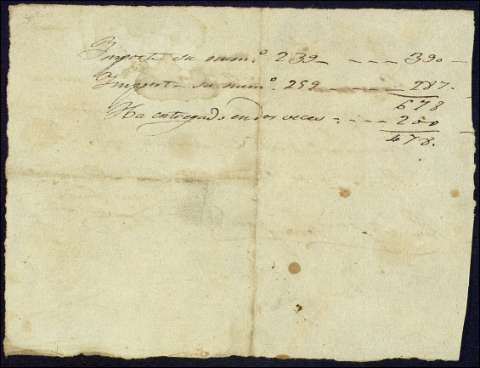 Importa su num.º 239 - - - - 390
Importa su num.º 259 - - - - - 287.
678
Ha entregado en dos veces - - - - 200
478.